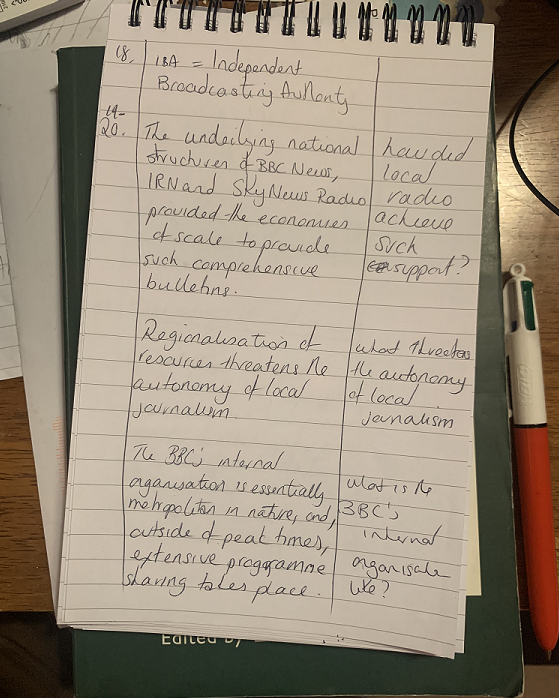 18. IBA = Independent
Broadcasting Authority
19-
20. The underlying national how did
structures of BBC News, local
IRN and Sky News Radio radio
provided the economies achieve
of scale to provide such
such comprehensive support?
bulletins.
Regionalisation of what threatens
resources threatens the the autonomy
autonomy of local of local
journalism journalism
The BBC's internal
organisation is essentially what is the
metropolitan in nature, and, BBC's
outside of peak times, internal
extensive programme organisation
sharing takes place. like?
Edited by